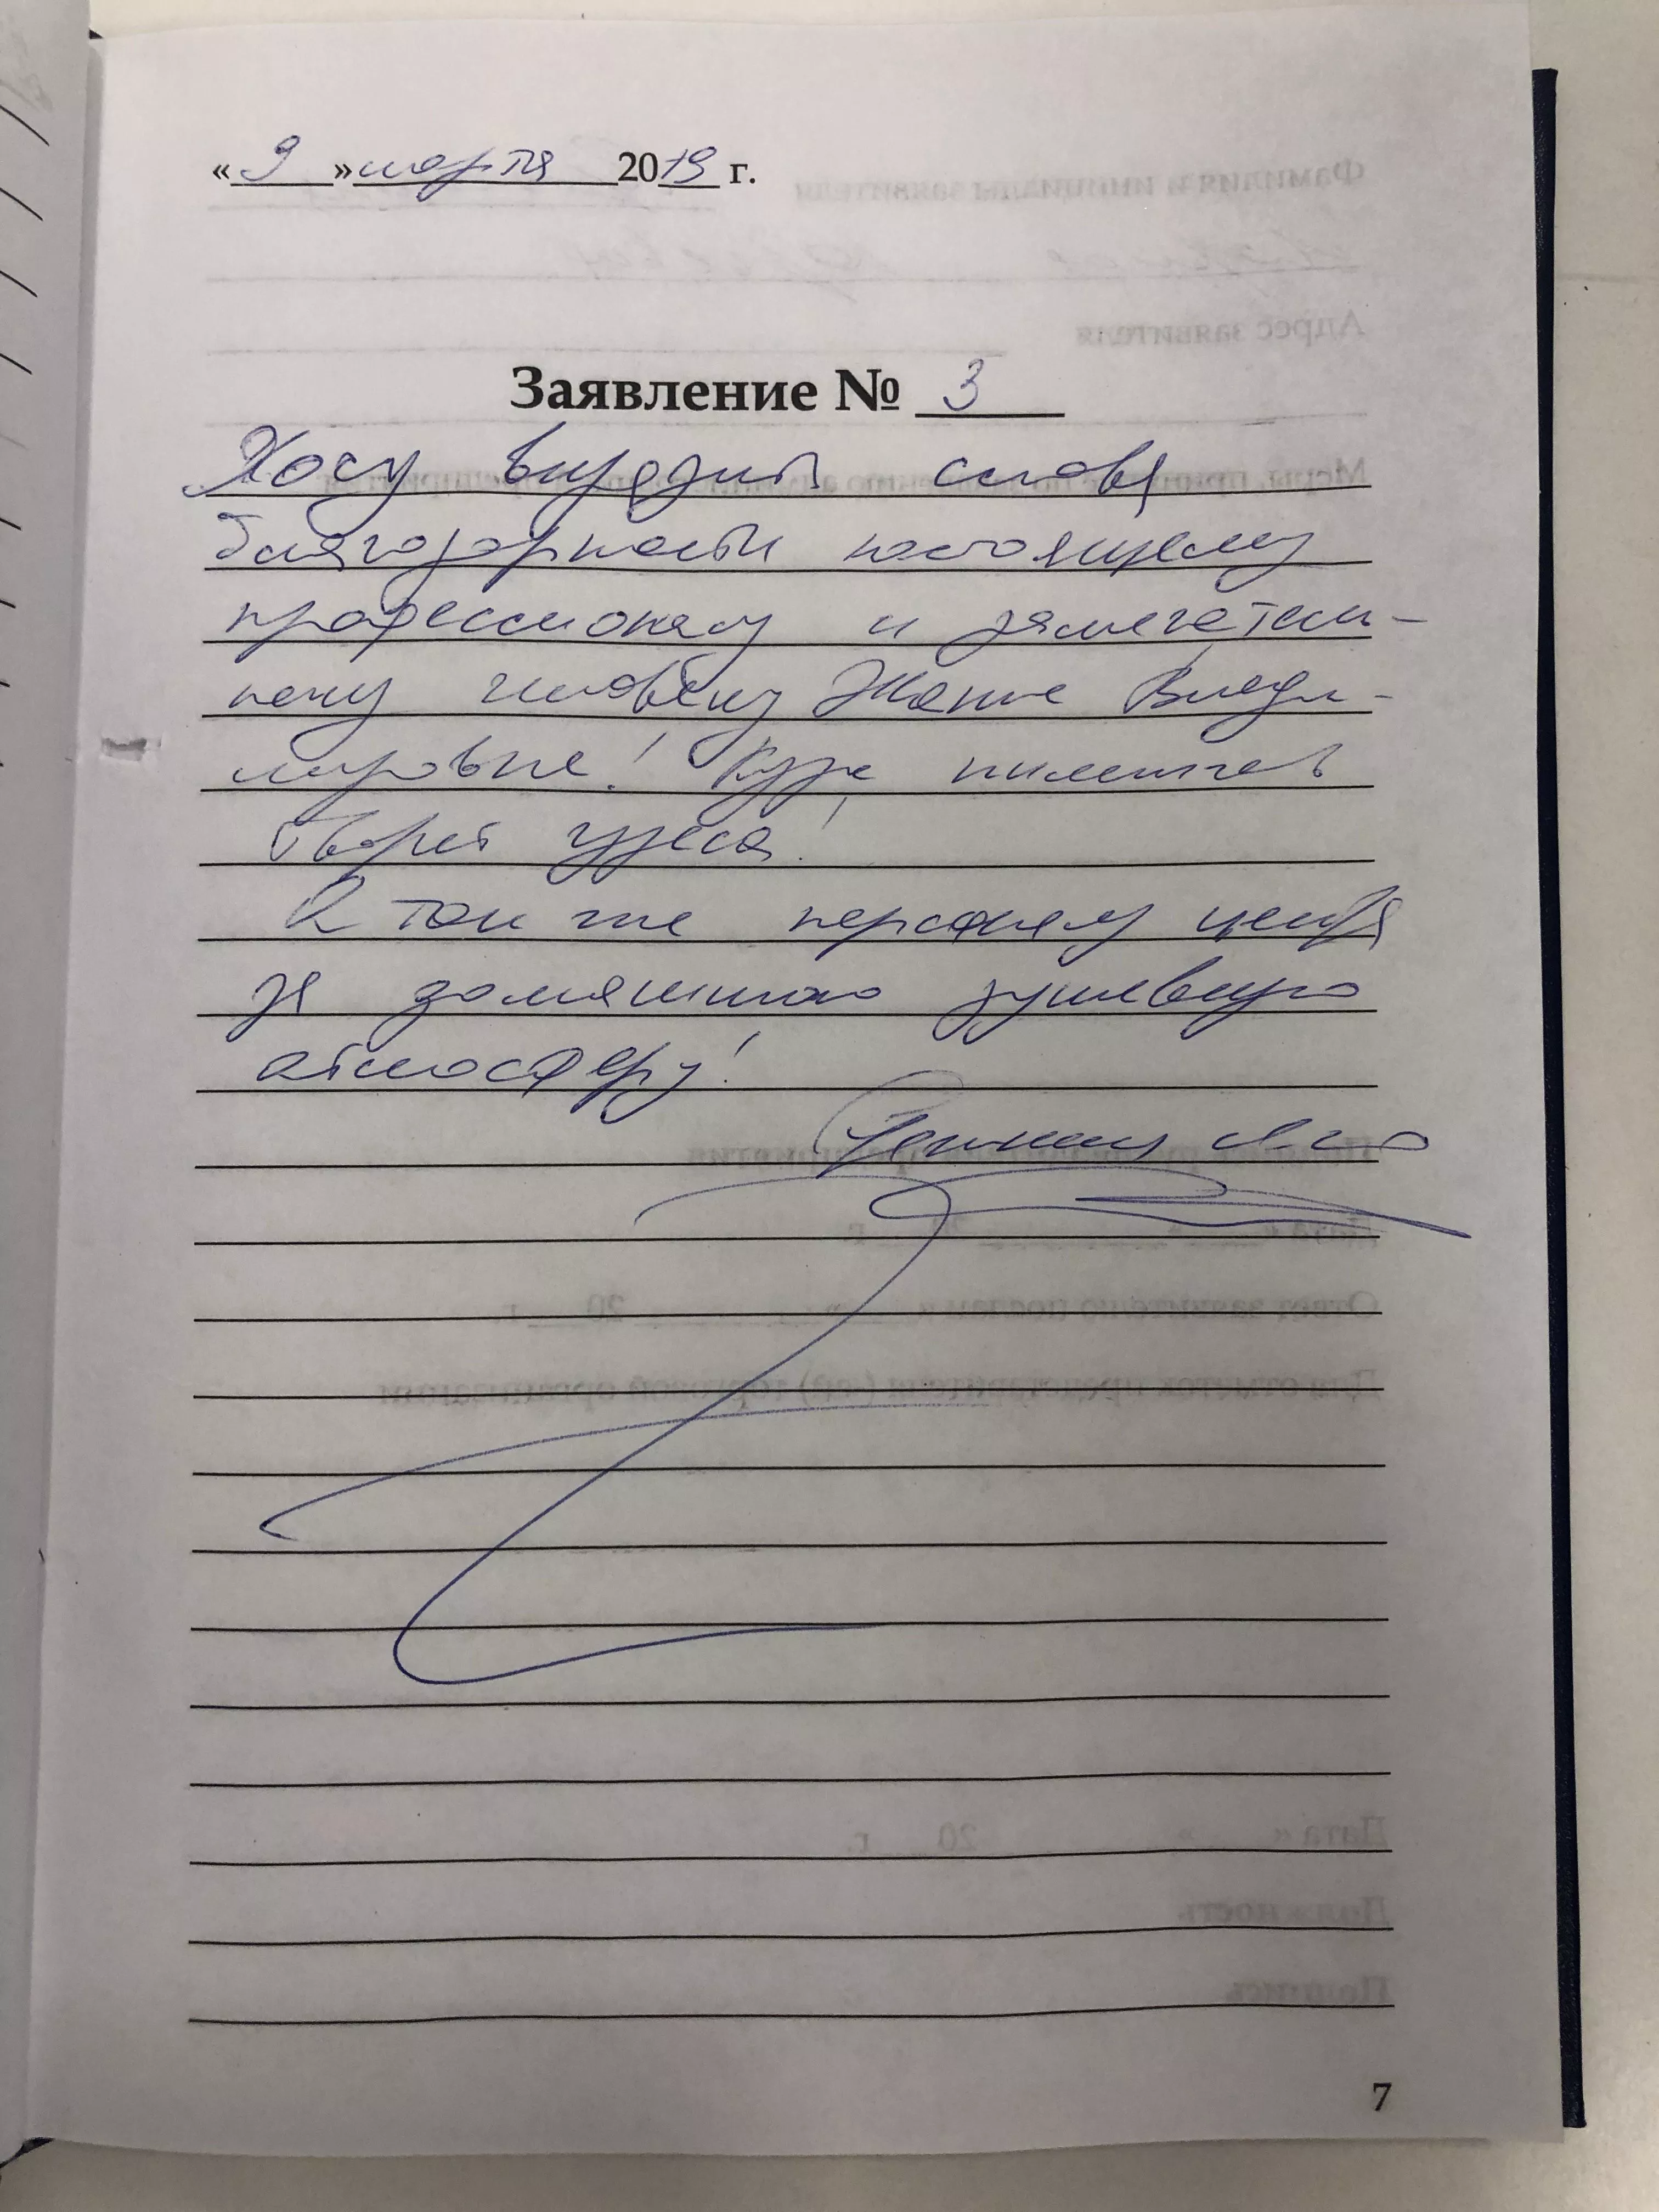 «9» марта 2019 г.
Заявление № 3
Хочу выразить слова
благодарности настоящему
профессионалу и замечатель-
ному человеку Жанне Влади-
мировне! Курс
творит чудеса!
А так же персоналу центра
за домашнюю душевную
атмосферу!
7